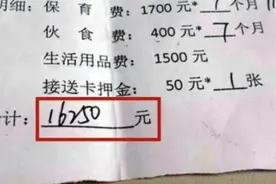 明细：保育费：1700元*7个月
伙食费：400元*7个月
生活用品费：1500元
接送卡押金：50元*1张
计：16250元